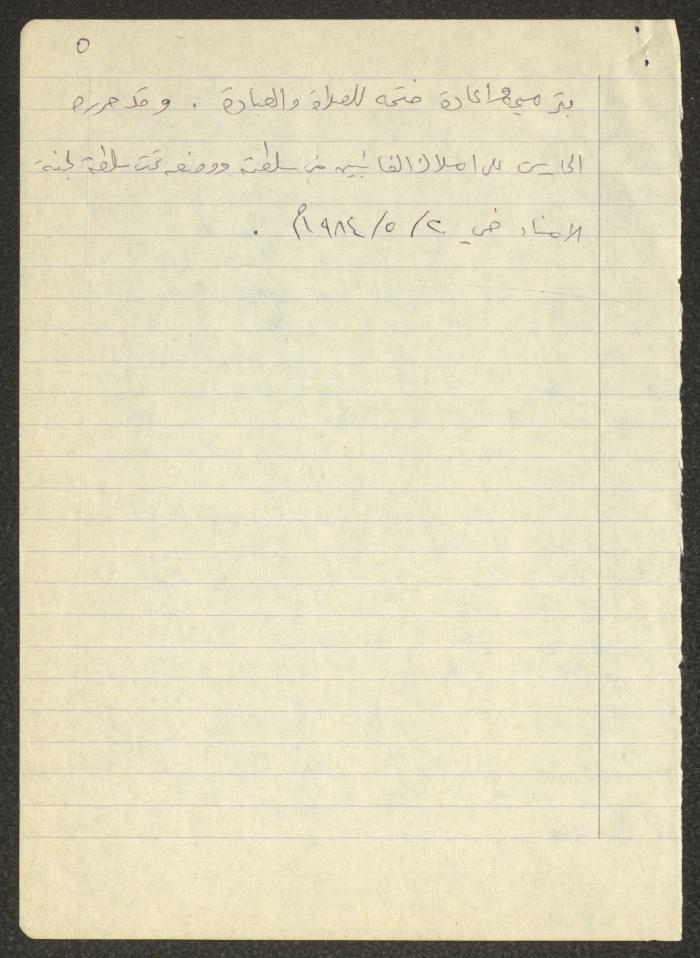 ٥
بترميمه واعادة فتحه للصلاة والعبادة . وقد حرره
الحارس على املاك الغائبين من سلطته ووضعه تحت سلطة لجنة
الامناء في ٢٠/٥/١٩٨٤م .